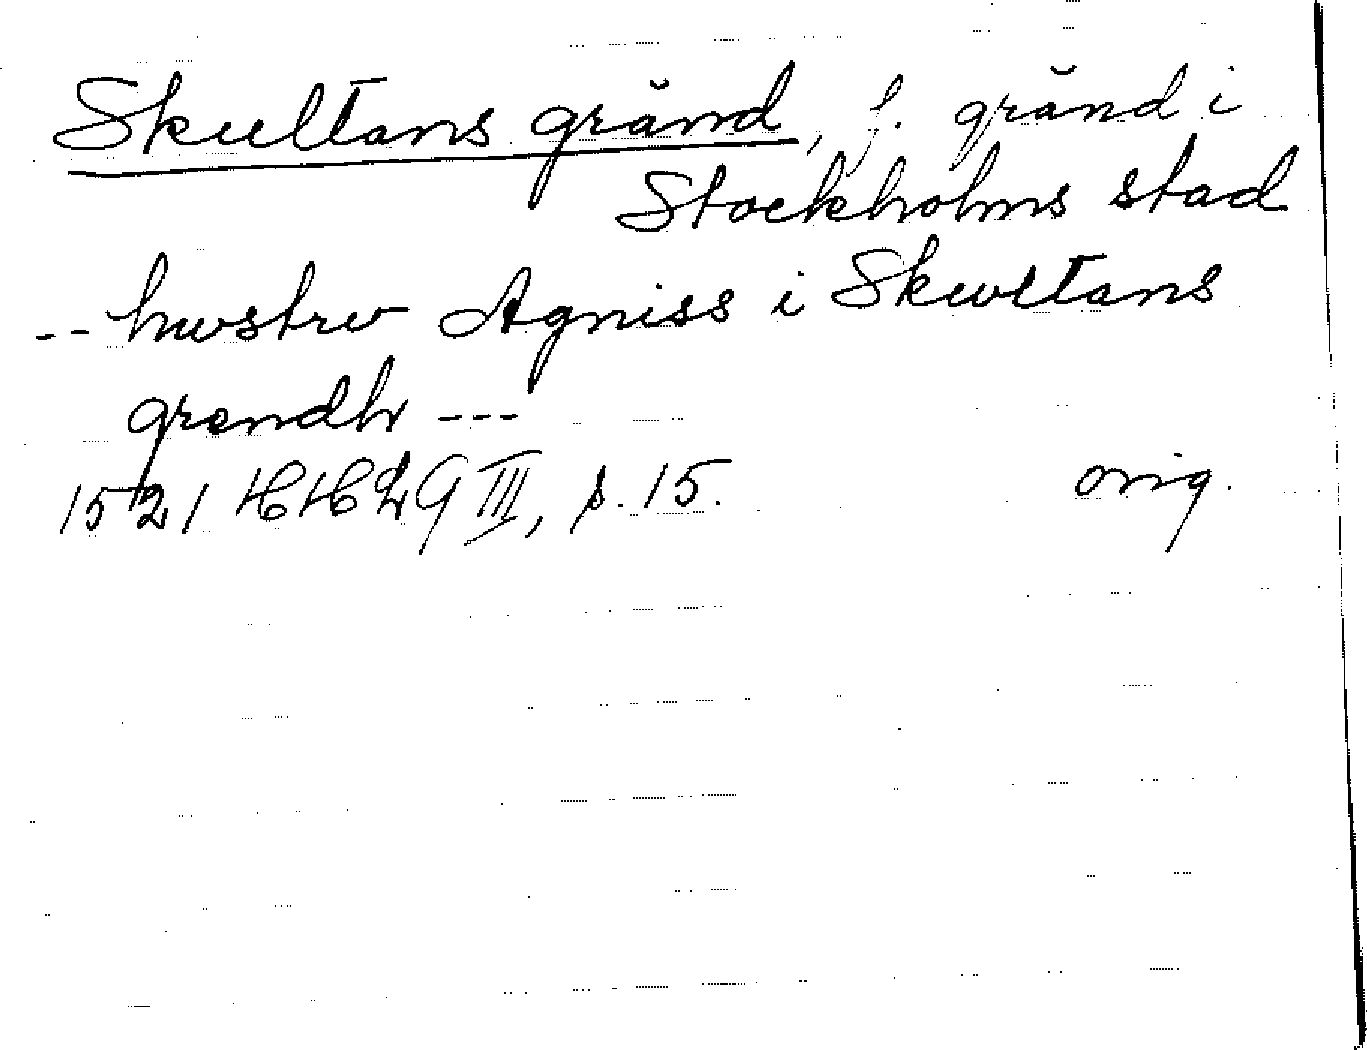 Skultans gränd, f. gränd i
Stockholms stad
-- hwstrw Agniss i Skwltans
grendh ---
1521 HHLG III, s. 15. orig.